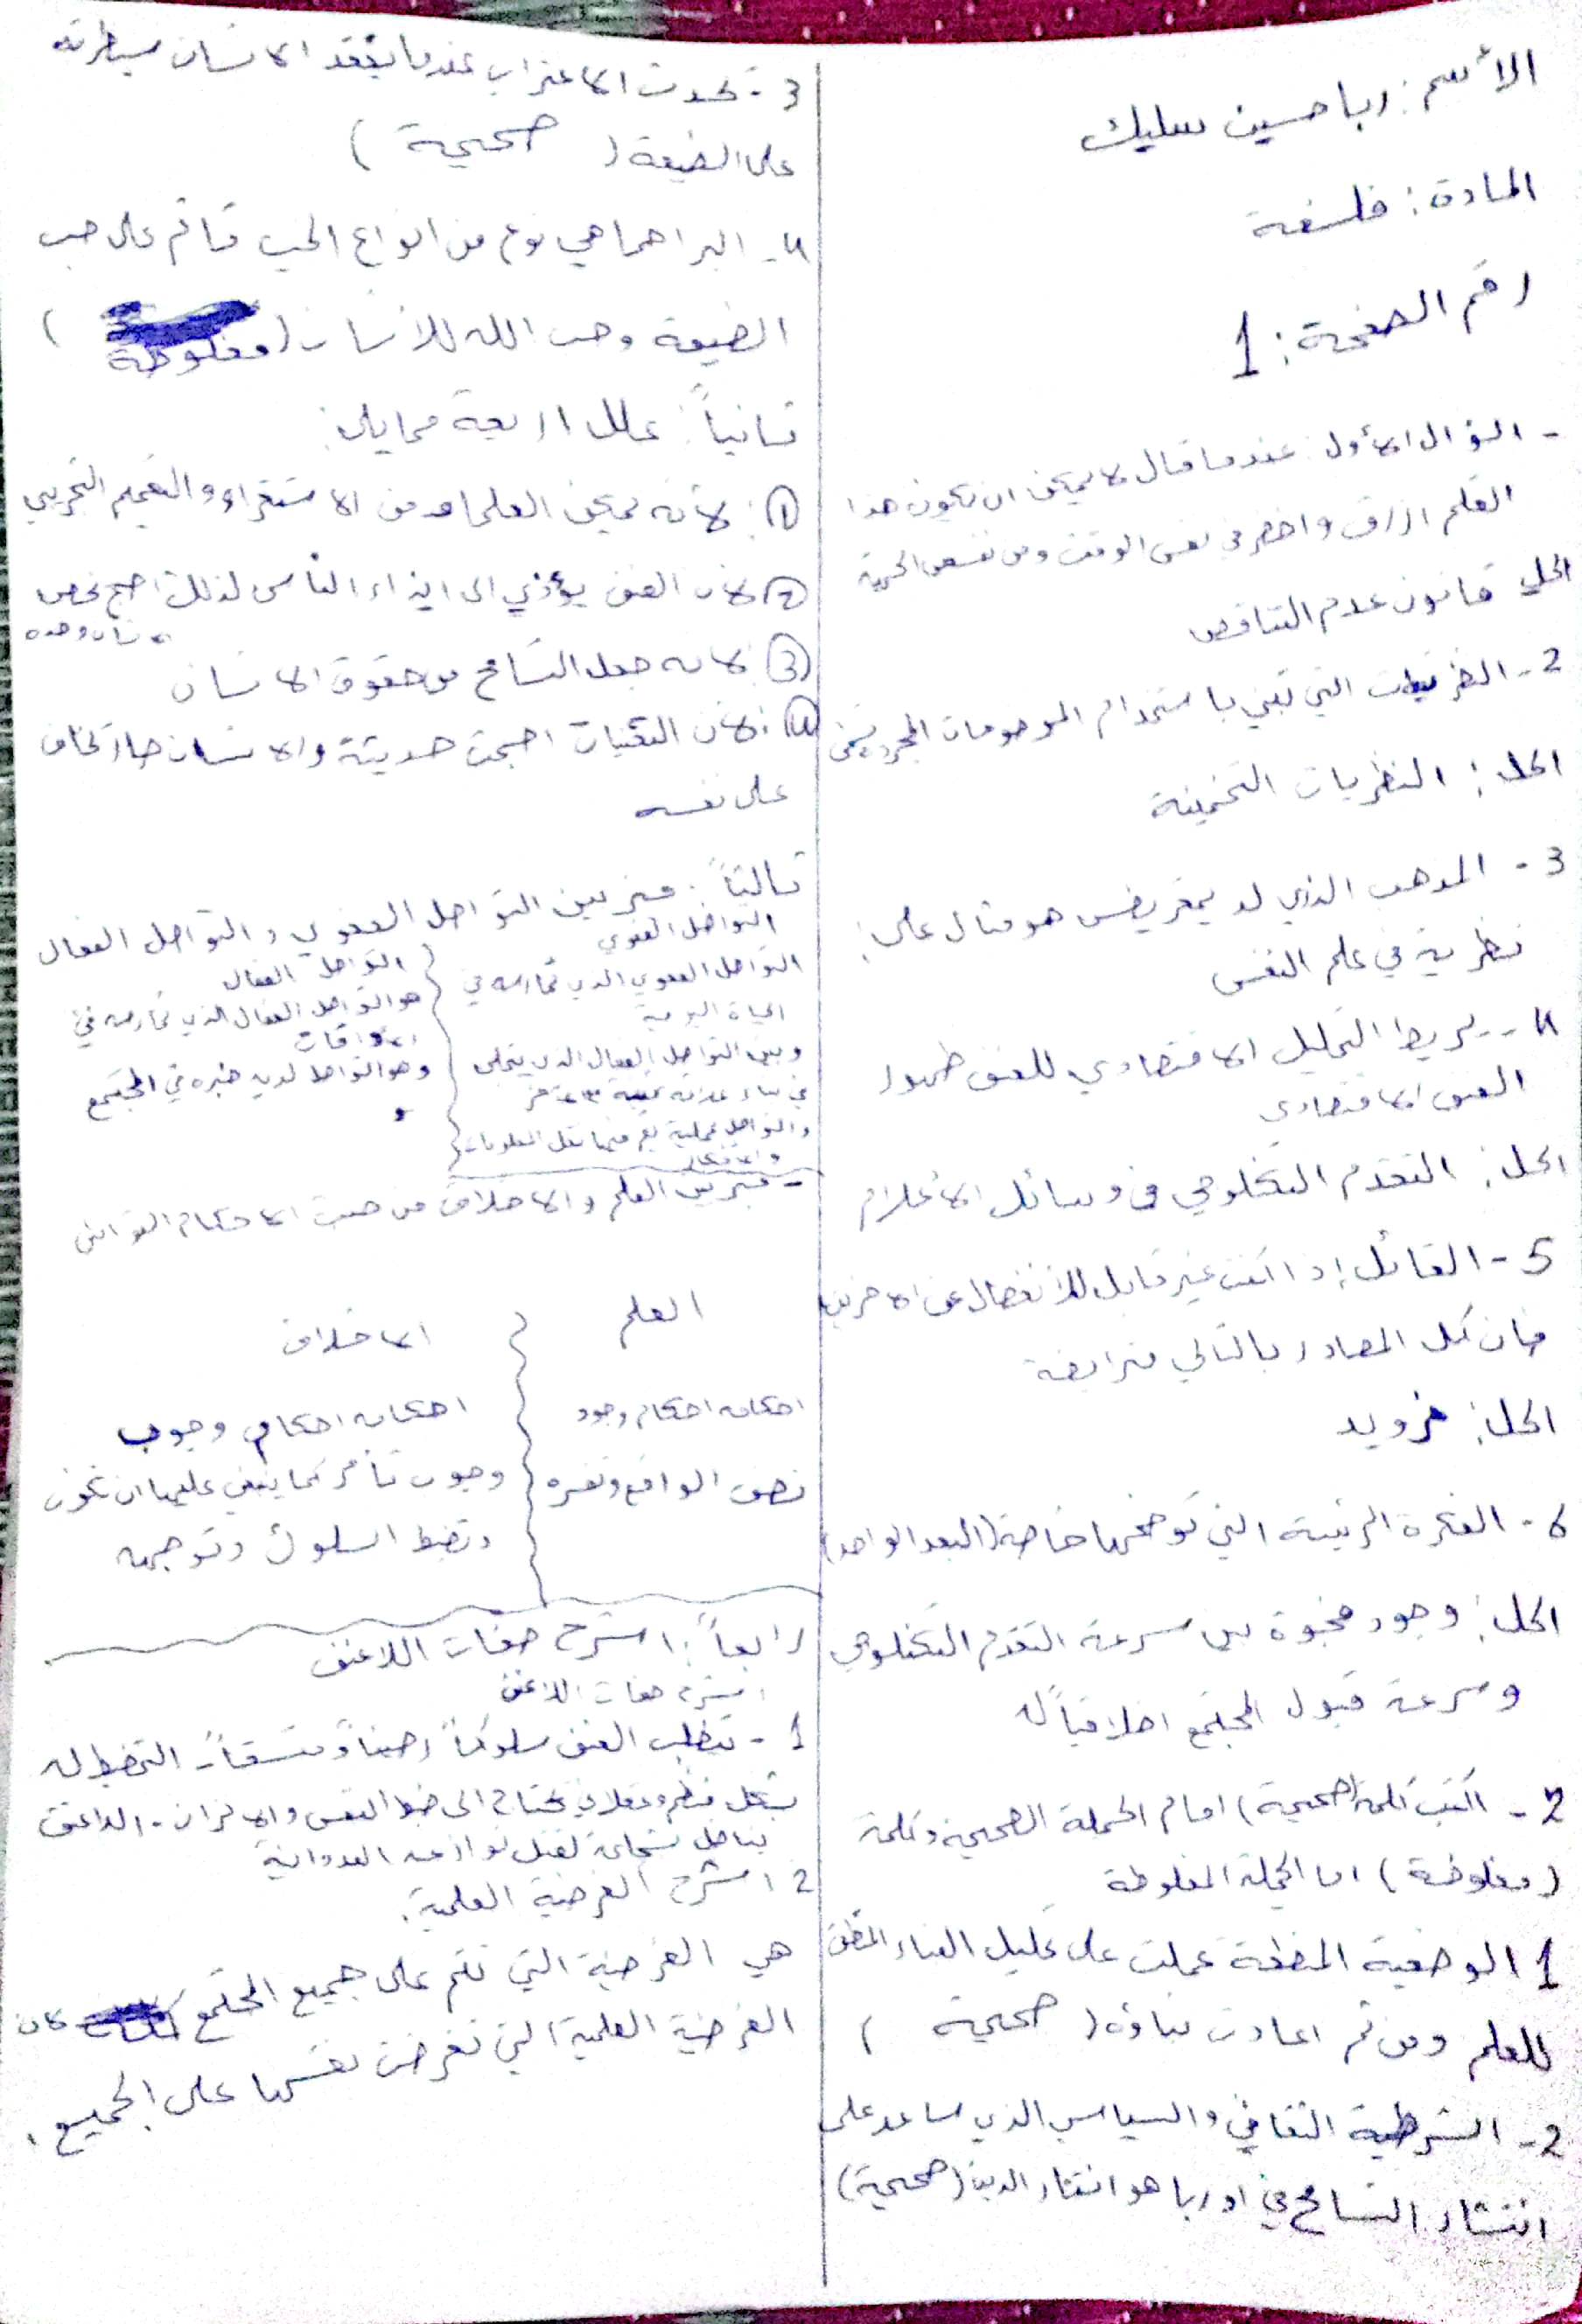 الأسم: ربا حسين سليك
المادة: فلسفة
رقم الصفحة: 1
- السؤال الأول: عندما قال لا يمكن ان يكون هذا
القلم ازرق و اخضر في نفس الوقت ومن نفس الجهة
الحل قانون عدم التناقض
2- النظريات التي تبنى باستخدام الموضوعات المجردة تسمى
الحل: النظريات التخمينة
3- المذهب الذي لد يمغريضس هو مثال على:
نظرية في علم النفس
4-- يربط التحليل الاقتصادي للعنف ظهور
العنف الاقتصادي
الحل: التقدم التكنلوجي في وسائل الأعلام
5- القائل إذا كنت غير قابل للأنفصال عن الاخرين
فان كل المصادر بالتالي مترابطة
الحل: فرويد
6- الفكرة الرئيسة التي توضحها خاصة (البعد الواحد)
الحل: وجود فجوة بين سرعة التقدم التكنلوجي
وسرعة قبول المجتمع اخلاقياً له
2- اكتب كلمة (صحيحة) امام الجملة الصحيحة وكلمة
(مغلوطة) اما الجملة المغلوطة
1 الوضعية المنطقة عملت على تحليل البناء المنطقي
للعلم ومن ثم اعادت بناؤه ( صحيحة )
2- الشرطية الثقافي والسياسي الذي ساعد على
انتشار التسامح في اوربا هو انتشار الدين (صحيحة)
3- يحدث الاغتراب عندما يفقد الانسان سيطرته
على الطبيعة ( صحيحة )
4- البراهما هي نوع من انواع الحب قائم على حب
الطبيعة وحب الله للانسان (مغلوطة )
ثانياً: علل اربعة مما يلي:
① لأنه يمكن العلماء من الاستقراء والتعميم التجريبي
② لأن العنف يؤذي الى ايذاء الناس لذلك اصبح يخص
الانسان وحده
③ لأنه جعل التسامح من حقوق الانسان
④ لأن التقنيات اصبحت حديثة والانسان صار يخاف
على نفسه
ثالثاً: ميز بين التواصل العفوي و التواصل الفعال
التواصل العفوي
التواصل العفوي الذي نمارسه في
الحياة اليومية
وبين التواصل الفعال الذي يتجلى
في بناء علاقة
والتواصل عملية يتم فيها نقل المعلومات
والافكار
التواصل الفعال
هو التواصل الفعال الذي نمارسه في
وهو التواصل لديه خبره في المجتمع
- ميز بين العلم والاخلاق من حيث الاحكام القوانين
العلم
احكامه احكام وجود
نصف الواقع وتفسره
الاخلاق
احكامه احكام وجوب
وجوب تأمر بما ينبغي عليها ان تكون
وتضبط السلوك وتوجيهه
رابعاً: اشرح صفات اللاعنف
اشرح صفات اللاعنف
1- يتطلب العنف سلوكاً رصيناً ومتسقاً - التخطيط له
بشكل منظم وعقلاني يحتاج الى ضبط النفس والاتزان - اللاعنف
يناضل بشجاعة لقتل نوازعه العدوانية
2 اشرح الفرضية العلمية.
هي الفرضية التي تتم على جميع المجتمع لان
الفرضية العلمية التي تفرض نفسها على الجميع.